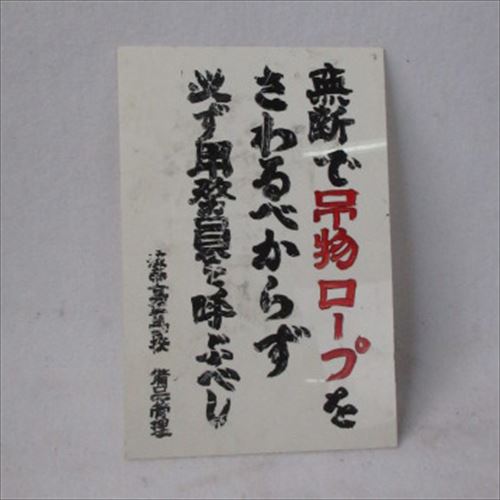 無断で吊物ロープを
さわるべからず
必ず用務員を呼ぶべし
備品管理